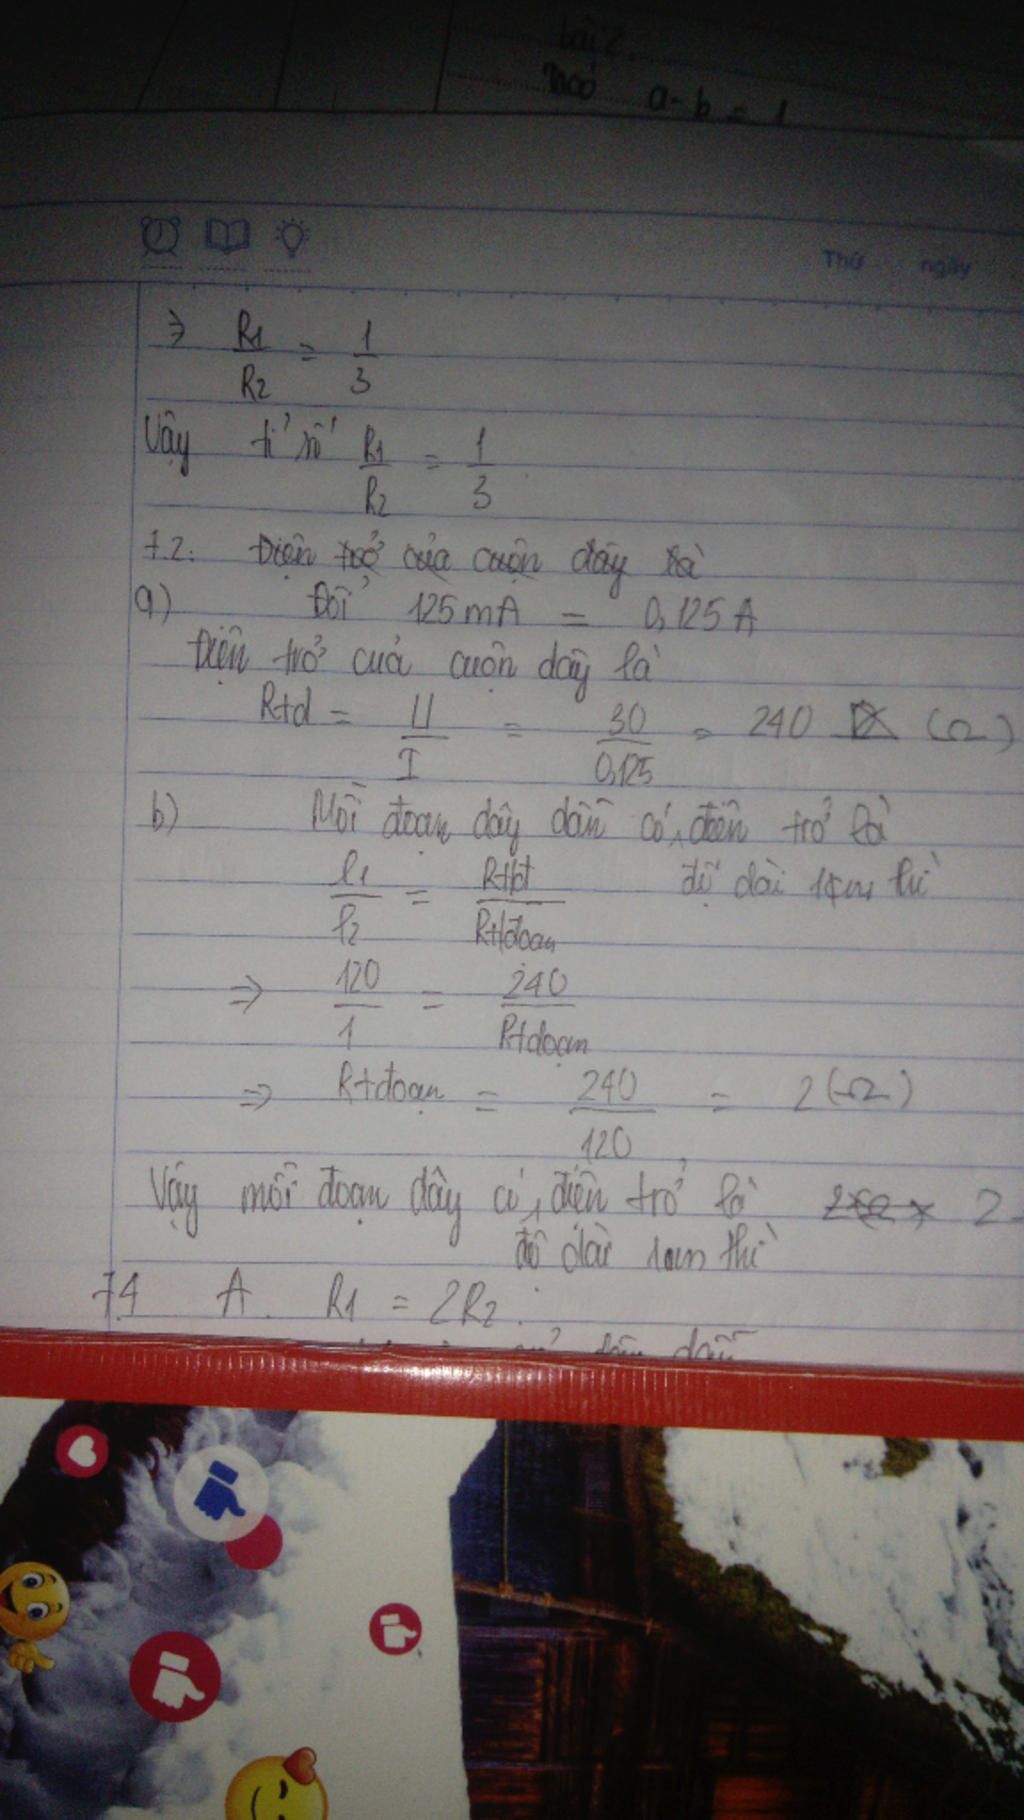 bài 2.
a - b = 1
Thứ ngày
⇒ R1/R2 = 1/3
Vậy tỉ số R1/R2 = 1/3
7.2. Điện trở của cuộn dây là
a) Đổi 125mA = 0,125 A
Điện trở của cuộn dây là
R+d = U/I = 30/0,125 = 240 (Ω)
b) Mỗi đoạn dây dẫn có điện trở là
độ dài 1cm thì
l1/l2 = /R+đoạn
⇒ 120/1 = 240/R+đoạn
⇒ R+đoạn = 240/120 = 2 (Ω)
Vậy mỗi đoạn dây có điện trở là 2
độ dài 1cm thì
74 A. R1 = 2R2.